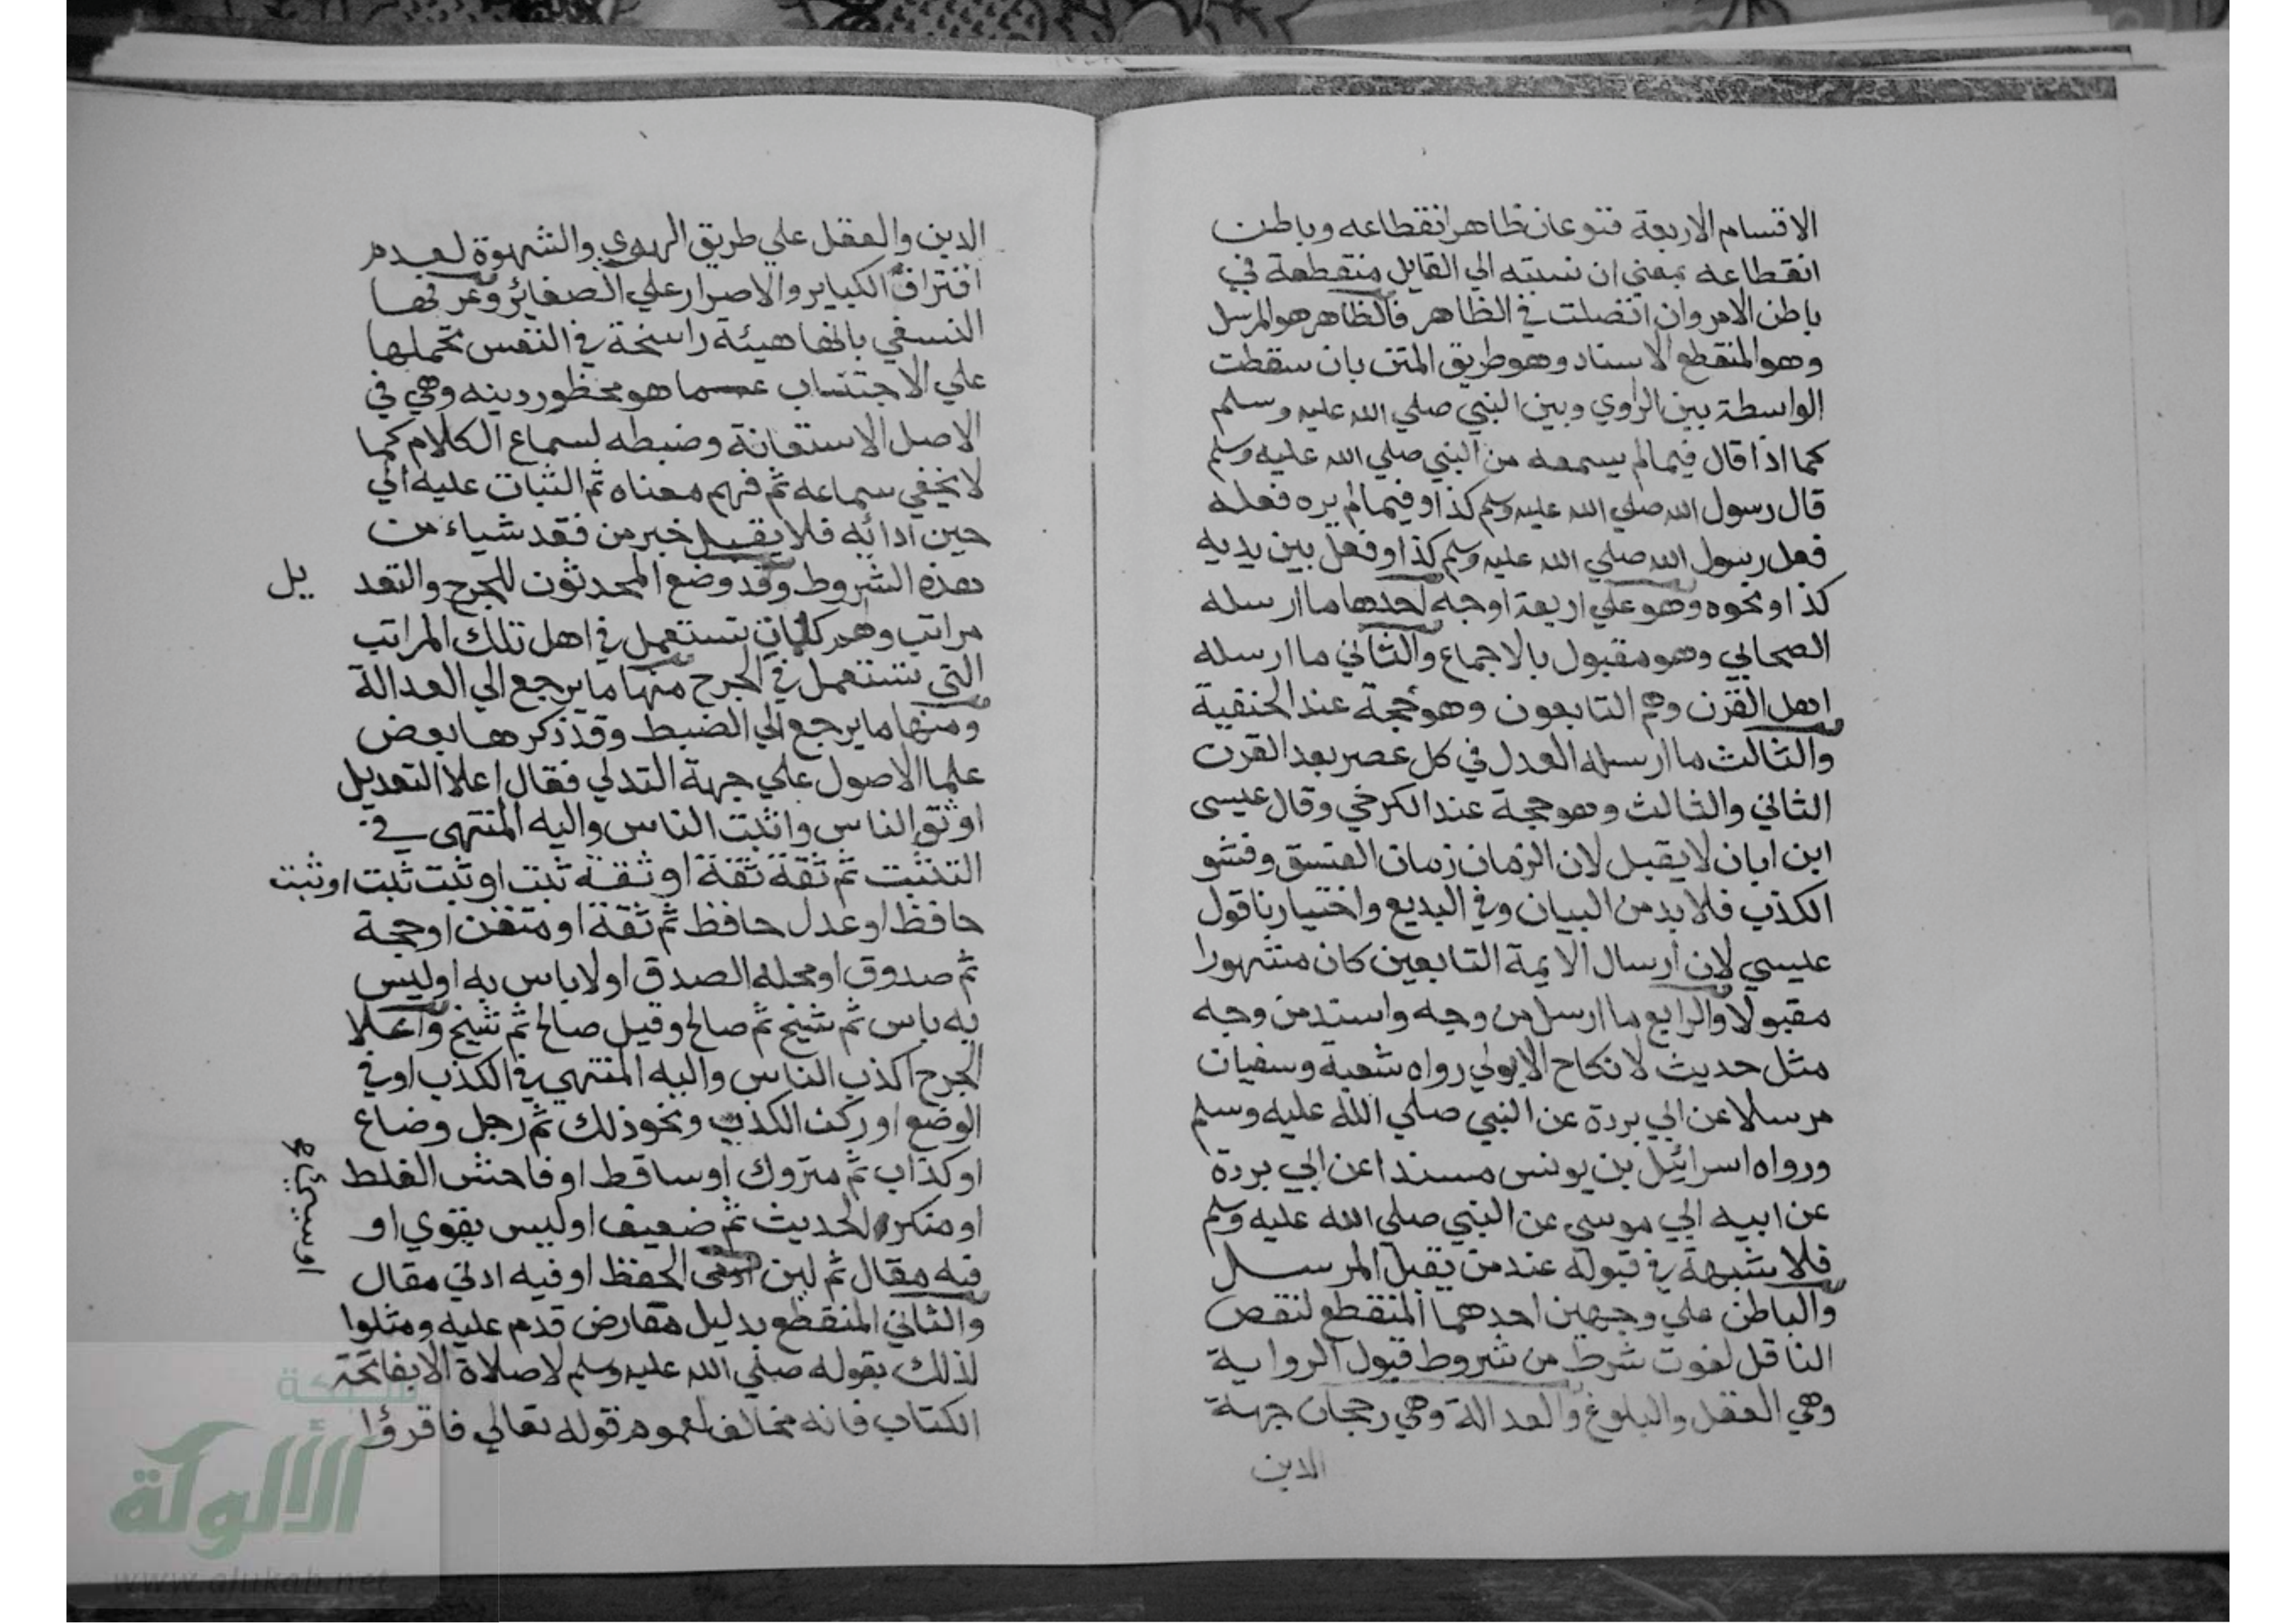 الاقسام الاربعة فنوعان ظاهر انقطاعه وباطن
انقطاعه بمعني ان نسبته الي القايل منقطعة في
باطن الامر وان اتصلت في الظاهر فالظاهر هو المرسل
وهو المنقطع الاسناد وهو طريق المتن بان سقطت
الواسطة بين الراوي وبين النبي صلي الله عليه وسلم
كما اذا قال فيما لم يسمعه من النبي صلي الله عليه وسلم
قال رسول الله صلي الله عليه وسلم كذا او فيما لم يره فعله
فعل رسول الله صلي الله عليه وسلم كذا او فعل بين يديه
كذا او نحوه وهو علي اربعة اوجه احدها ما ارسله
الصحابي وهو مقبول بالاجماع والثاني ما ارسله
اهل القرن وهم التابعون وهو حجة عند الحنفية
والثالث ما ارسله العدل في كل عصر بعد القرن
الثاني والثالث وهو حجة عند الكرخي وقال عيسى
ابن ابان لا يقبل لان الزمان زمان الفسق وفشو
الكذب فلا بد من البيان وفي البديع واختيارنا قول
عيسي لان ارسال الايمة التابعين كان مشهورا
مقبولا والرابع ما ارسل من وجه واسند من وجه
مثل حديث لا نكاح الا بولي رواه شعبة وسفيان
مرسلا عن ابي بردة عن النبي صلي الله عليه وسلم
ورواه اسرائيل بن يونس مسندا عن ابي بردة
عن ابيه ابي موسي عن النبي صلي الله عليه وسلم
فلا شبهة في قبوله عند من يقبل المرسل
والباطن علي وجهين احدهما المنقطع لنقص
الناقل لفوت شرط من شروط قبول الرواية
وهي العقل والبلوغ والعدالة وهي رجحان جهة
الدين
الدين والعقل علي طريق الهوي والشهوة لعدم
اقتراف الكباير والاصرار علي الصغائر وعرفها
النسفي بانها هيئة راسخة في النفس تحملها
علي الاجتناب عما هو محظور دينه وهي في
الاصل الاستقانة وضبطه لسماع الكلام كما
لا يخفي سماعه ثم فهم معناه ثم الثبات عليه الي
حين ادائه فلا يقبل خبر من فقد شياء من
هذه الشروط وقد وضع المحدثون للجرح والتعد يل
مراتب وهي كلمات تستعمل في اهل تلك المراتب
التي تستعمل في الجرح منها ما يرجع الي العدالة
ومنها ما يرجع الي الضبط وقد ذكرها بعض
علما الاصول علي جهة التدلي فقال اعلا التعديل
اوثق الناس واثبت الناس واليه المنتهى في
التثبت ثم ثقة ثقة او ثقة ثبت او ثبت ثبت او ثبت
حافظ او عدل حافظ ثم ثقة او متقن او حجة
ثم صدوق او محله الصدق او لا باس به او ليس
به باس ثم شيخ ثم صالح وقيل صالح ثم شيخ واعلا
الجرح اكذب الناس واليه المنتهي في الكذب او في
الوضع او ركن الكذب ونحو ذلك ثم رجل وضاع
او كذاب ثم متروك او ساقط او فاحش الغلط
او منكر الحديث ثم ضعيف او ليس بقوي او
فيه مقال ثم لين الحفظ او فيه ادني مقال
والثاني المنقطع بدليل معارض قدم عليه ومثلوا
لذلك بقوله صلي الله عليه وسلم لا صلاة الا بفاتحة
الكتاب فانه مخالف لعموم قوله تعالي فاقرؤا
شبكة
الألوكة
www.alukah.net